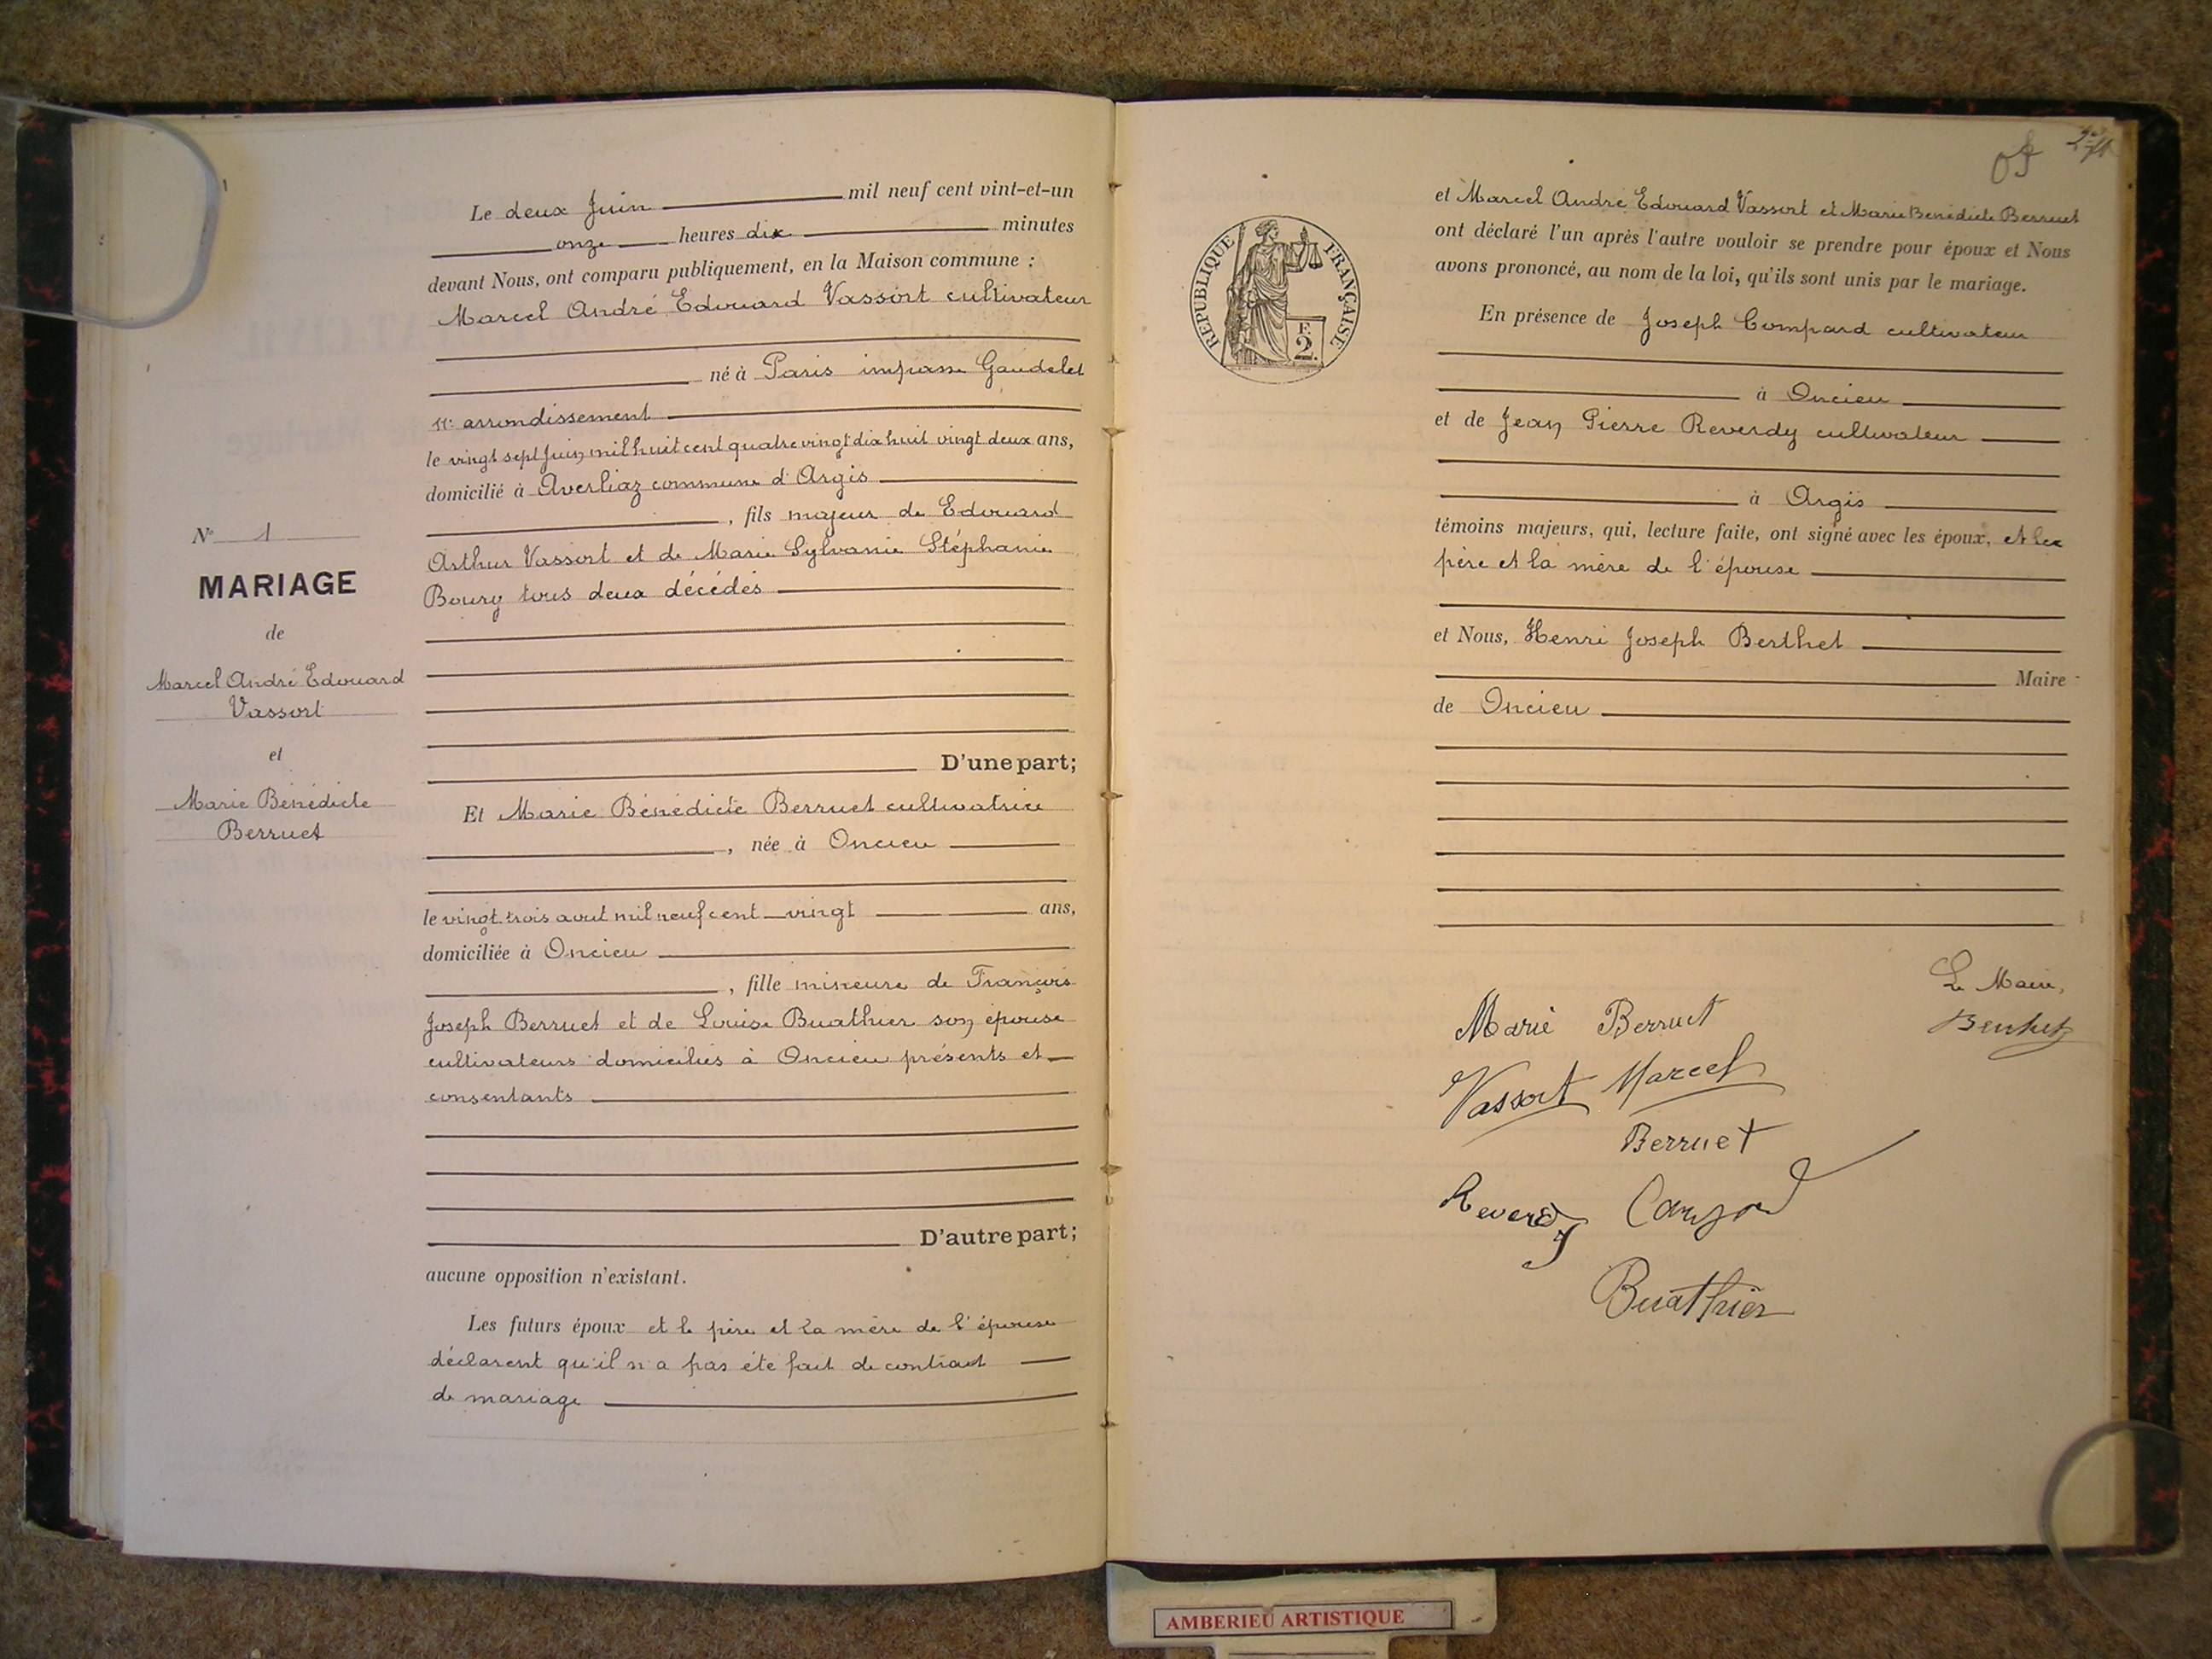 Le deux Juin mil neuf cent vint-et-un
onze heures dix minutes
devant Nous, ont comparu publiquement, en la Maison commune :
Marcel André Edouard Vassort cultivateur
né à Paris impasse Gaudelet
11e arrondissement
le vingt sept Juin mil huit cent quatre vingt dix huit vingt deux ans,
domicilié à Averliaz commune d'Argis
, fils majeur de Edouard
Arthur Vassort et de Marie Sylvanie Stéphanie
Boury tous deux décédés
D'une part;
Et Marie Bénédicte Berruet cultivatrice
, née à Oncieu
le vingt trois aout mil neuf cent vingt ans,
domiciliée à Oncieu
, fille mineure de François
Joseph Berruet et de Louise Buathier son épouse
cultivateurs domiciliés à Oncieu présents et
consentants
D'autre part;
aucune opposition n'existant.
Les futurs époux et le père et la mère de l'épouse
déclarent qu'il n'a pas été fait de contract
de mariage
N° 1
MARIAGE
de
Marcel André Edouard
Vassort
et
Marie Bénédicte
Berruet
RÉPUBLIQUE FRANÇAISE
F.
2.
et Marcel André Edouard Vassort et Marie Bénédicte Berruet
ont déclaré l'un après l'autre vouloir se prendre pour époux et Nous
avons prononcé, au nom de la loi, qu'ils sont unis par le mariage.
En présence de Joseph Compard cultivateur
à Oncieu
et de Jean Pierre Reverdy cultivateur
à Argis
témoins majeurs, qui, lecture faite, ont signé avec les époux, et les
père et la mère de l'épouse
et Nous, Henri Joseph Berthet
Maire
de Oncieu
Le Maire,
Berthet
Marie Berruet
Vassort Marcel
Berruet
Reverdy
Buathier
AMBERIEU ARTISTIQUE